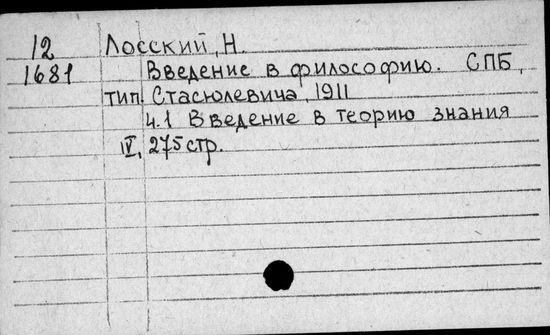 12 Лосский, Н.
1681 Введение в философию. СПБ,
тип. Стасюлевича, 1911
ч.1 Введение в теорию знания
IV, 275 стр.